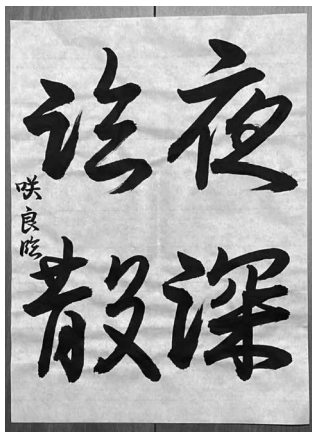 夜深
散
咲良臨